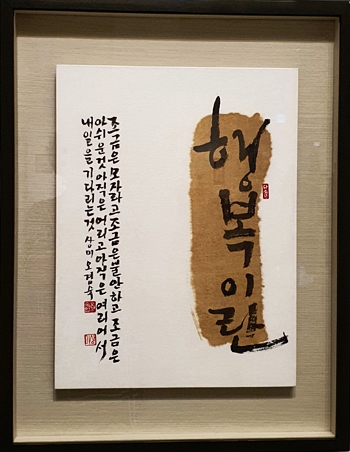 행복이란
조금은 모자라고 조금은 불안하고 조금은
아쉬운 것 아직은 어리고 아직은 여리어서
내일을 기다리는 것 상미 오경숙